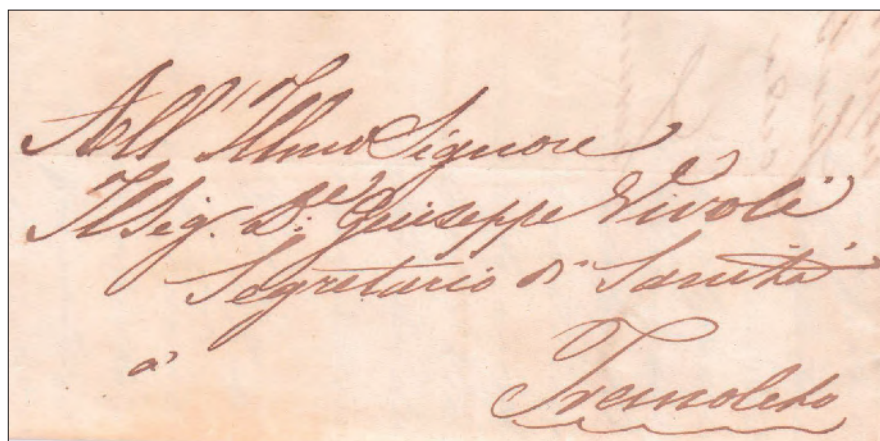 All' Illmo Signore
Il Sig. Dre. Giuseppe Vivoli
Segretario di Sanità
a
Tremoleto